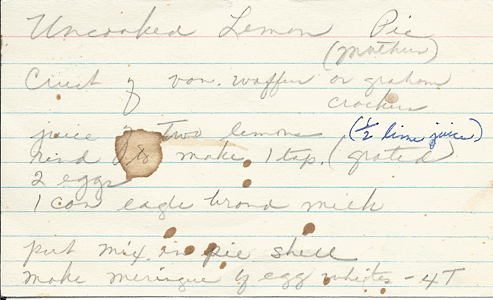 Uncooked Lemon Pie
(Mother's)
Crust of van. waffers or graham
crackers
juice of two lemons (1/2 lime juice)
rind to make 1 tsp. (grated)
2 eggs
1 can eagle brand milk
put mix. in pie shell
make meringue of egg whites - 4T